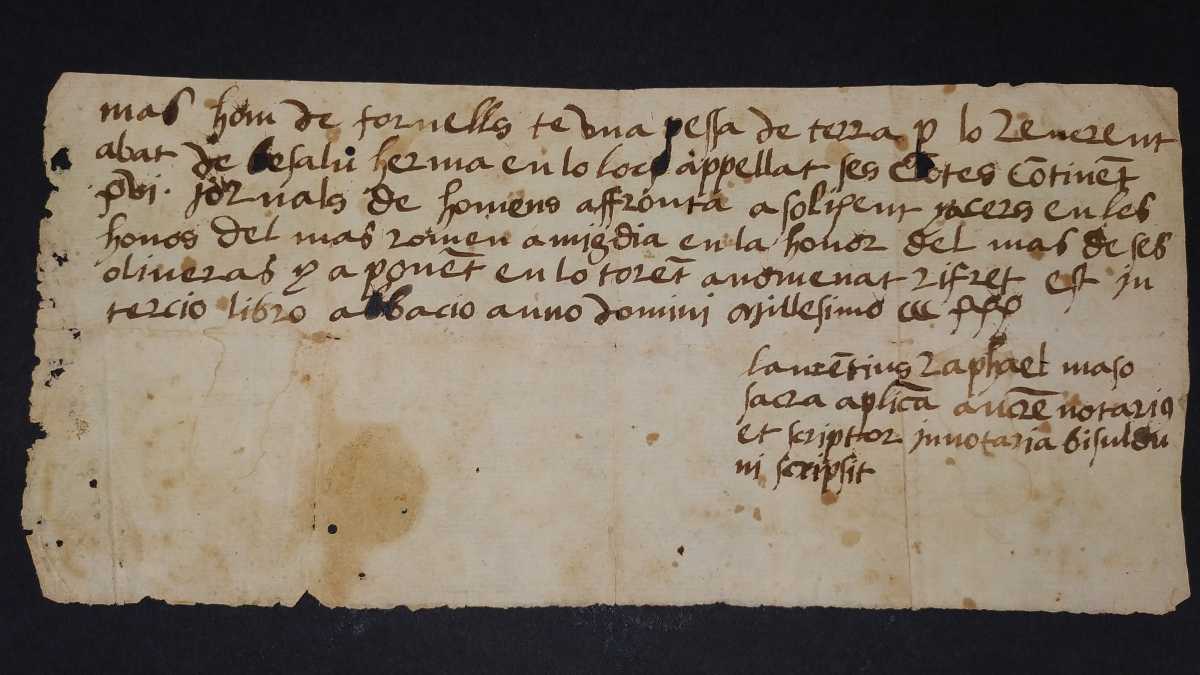 mas hom de fornells te vna pessa de terra p lo Reuerent
abat de besalu herma en lo loch appellat ses Cotes Cōtinēt
pvi. Jornals de homens affronta a solixent y a cers en les
honos del mas romeu a migdia en la honor del mas de ses
oliueras y a ponēt en lo torēt anomenat rifret est in
tercio libro abbacio anno domini Millesimo ccc
laurētius Raphael maso
sacra aplīca auctē notarius
et scriptor in notaria bisuldu
ni scripsit